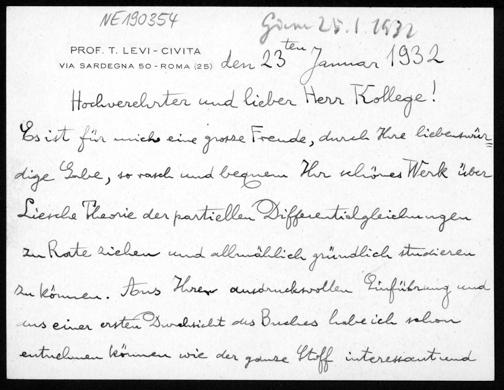 NE190354
25.1.1932
PROF. T. LEVI-CIVITA
VIA SARDEGNA 50 - ROMA (25)
den 23ten Januar 1932
Hochverehrter und lieber Herr Kollege!
Es ist für mich eine grosse Freude, durch Ihre liebenswür-
dige Gabe, so rasch und bequem Ihr schönes Werk über
Liesche Theorie der partiellen Differentialgleichungen
zu Rate ziehen und allmählich gründlich studieren
zu können. Aus Ihrer ausdrucksvollen Einführung und
aus einer ersten Durchsicht des Buches habe ich schon
entnehmen können wie der ganze Stoff interessant und